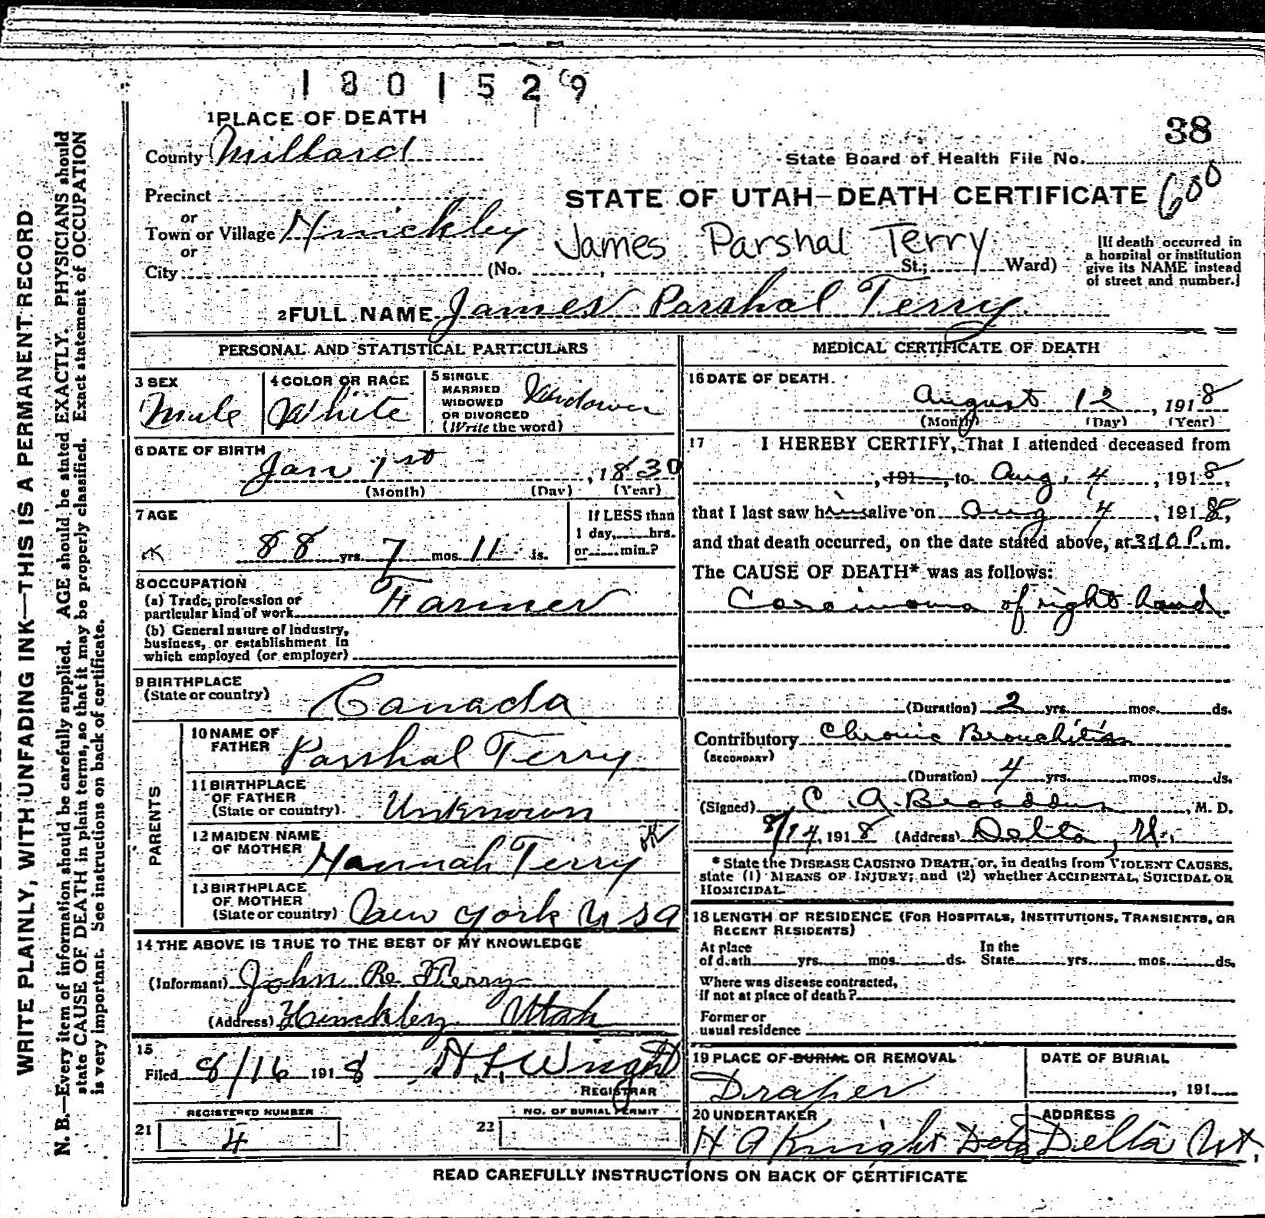 1801529
1 PLACE OF DEATH
38
County Millard
State Board of Health File No.
Precinct
STATE OF UTAH—DEATH CERTIFICATE 600
or
Town or Village Hinickley
or
James Parshal Terry
City (No. , St.; Ward)
[If death occurred in
a hospital or institution
give its NAME instead
of street and number.]
2 FULL NAME James Parshal Terry
PERSONAL AND STATISTICAL PARTICULARS
3 SEX
Male
4 COLOR OR RACE
White
5 SINGLE
MARRIED
WIDOWED
OR DIVORCED
(Write the word)
Widower
6 DATE OF BIRTH
Jan 1st, 1830
(Month) (Day) (Year)
7 AGE
88 yrs. 7 mos. 11 ds.
If LESS than
1 day, hrs.
or min.?
8 OCCUPATION
(a) Trade, profession or
particular kind of work Farmer
(b) General nature of industry,
business, or establishment in
which employed (or employer)
9 BIRTHPLACE
(State or country) Canada
PARENTS
10 NAME OF
FATHER Parshal Terry
11 BIRTHPLACE
OF FATHER
(State or country) Unknown
12 MAIDEN NAME
OF MOTHER Hannah Terry OK
13 BIRTHPLACE
OF MOTHER
(State or country) New York USA
14 THE ABOVE IS TRUE TO THE BEST OF MY KNOWLEDGE
(Informant) John R. Terry
(Address) Hinckley Utah
15
Filed 8/16 1918 Wright
REGISTRAR
REGISTERED NUMBER
21 4
NO. OF BURIAL PERMIT
22
MEDICAL CERTIFICATE OF DEATH
16 DATE OF DEATH.
August 12, 1918
(Month) (Day) (Year)
17 I HEREBY CERTIFY, That I attended deceased from
, 191 , to Aug. 4, 1918,
that I last saw him alive on Aug 4, 1918,
and that death occurred, on the date stated above, at P.m.
The CAUSE OF DEATH* was as follows:
Carcinoma of right hand
(Duration) 2 yrs. mos. ds.
Contributory Chronic Bronchitis
(SECONDARY)
(Duration) 4 yrs. mos. ds.
(Signed) C. A. Broaddus, M. D.
8/14, 1918 (Address) Delta, U.
*State the DISEASE CAUSING DEATH, or, in deaths from VIOLENT CAUSES,
state (1) MEANS OF INJURY; and (2) whether ACCIDENTAL, SUICIDAL OR
HOMICIDAL.
18 LENGTH OF RESIDENCE (FOR HOSPITALS, INSTITUTIONS, TRANSIENTS, OR
RECENT RESIDENTS)
At place
of death yrs. mos. ds.
In the
State yrs. mos. ds.
Where was disease contracted,
if not at place of death?
Former or
usual residence
19 PLACE OF BURIAL OR REMOVAL
Draper
DATE OF BURIAL
, 191
20 UNDERTAKER
H A Knight
ADDRESS
Delta Ut.
READ CAREFULLY INSTRUCTIONS ON BACK OF CERTIFICATE
WRITE PLAINLY, WITH UNFADING INK—THIS IS A PERMANENT RECORD
N. B.—Every item of information should be carefully supplied. AGE should be stated EXACTLY. PHYSICIANS should
state CAUSE OF DEATH in plain terms, so that it may be properly classified. Exact statement of OCCUPATION
is very important. See instructions on back of certificate.